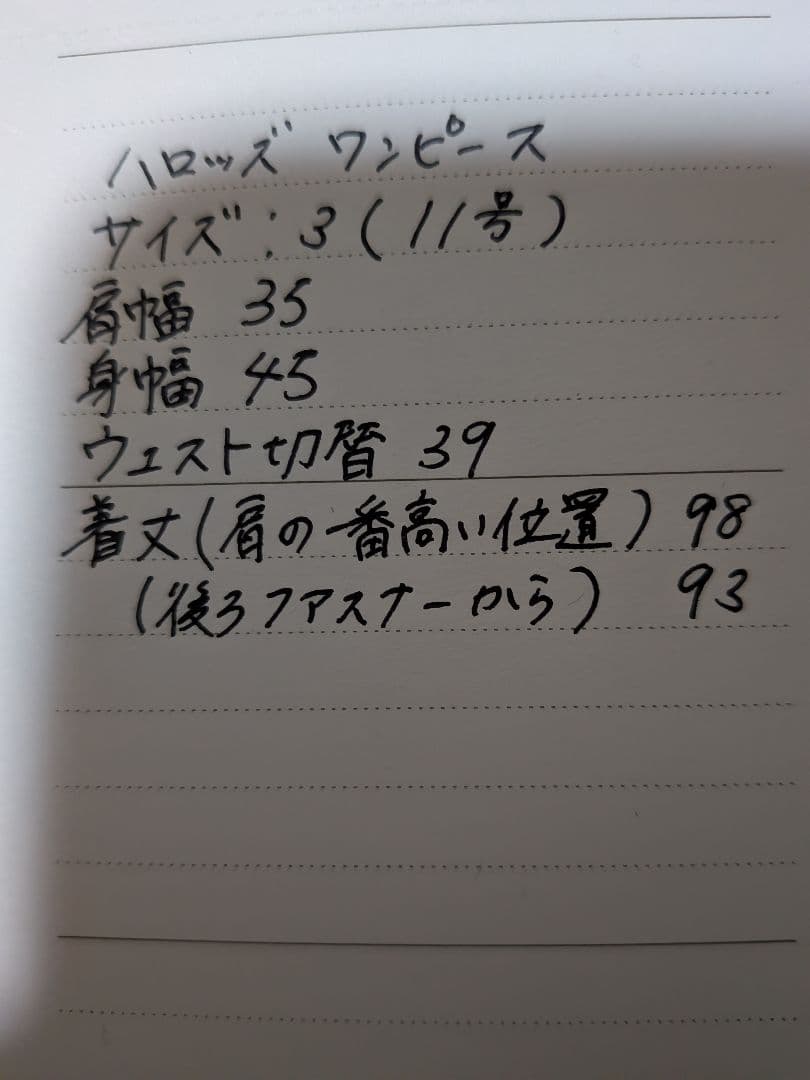 ハロッズ ワンピース
サイズ:3(11号)
肩幅 35
身幅 45
ウェスト切替 39
着丈(肩の一番高い位置) 98
(後ろファスナーから) 93